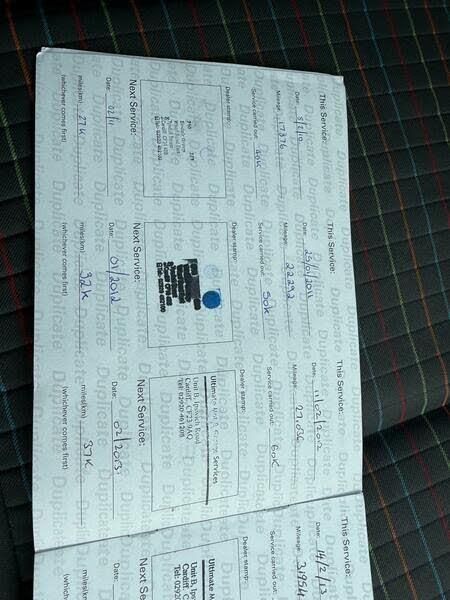 This Service:
Date: 5/2/10
Mileage: 17376
Service carried out: 40K
Dealer stamp:
Next Service:
Date: 02/11
miles(km) 27K
(whichever comes first)
This Service:
Date: 25/01/2011
Mileage: 22292
Service carried out: 50K
Dealer stamp:
Next Service:
Date: 01/2012
miles(km) 32K
(whichever comes first)
This Service:
Date: 11/02/2012
Mileage: 27,036
Service carried out: 60K
Dealer stamp:
Ultimate Services
Unit B, Ipswich Road
Cardiff, CF23 9AQ
Tel: 02920 461208
Next Service:
Date: 02/2013
miles(km) 37K
(whichever comes first)
This Service:
Date: 14/2/13
Mileage: 31954
Service carried out
Dealer stamp:
Ultimate M
Unit B, Ip
Cardiff, C
Tel: 0292
Next Service:
Date:
miles(km)
(whichever
Duplicate Duplicate Duplicate Duplicate